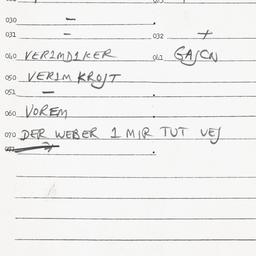 030 –
031 – 032 +
040 VERIMDIKER 041 GASCN
050 VERIM KROST
051 –
060 VOREM
070 DER WEBER 1 MIR TUT VES